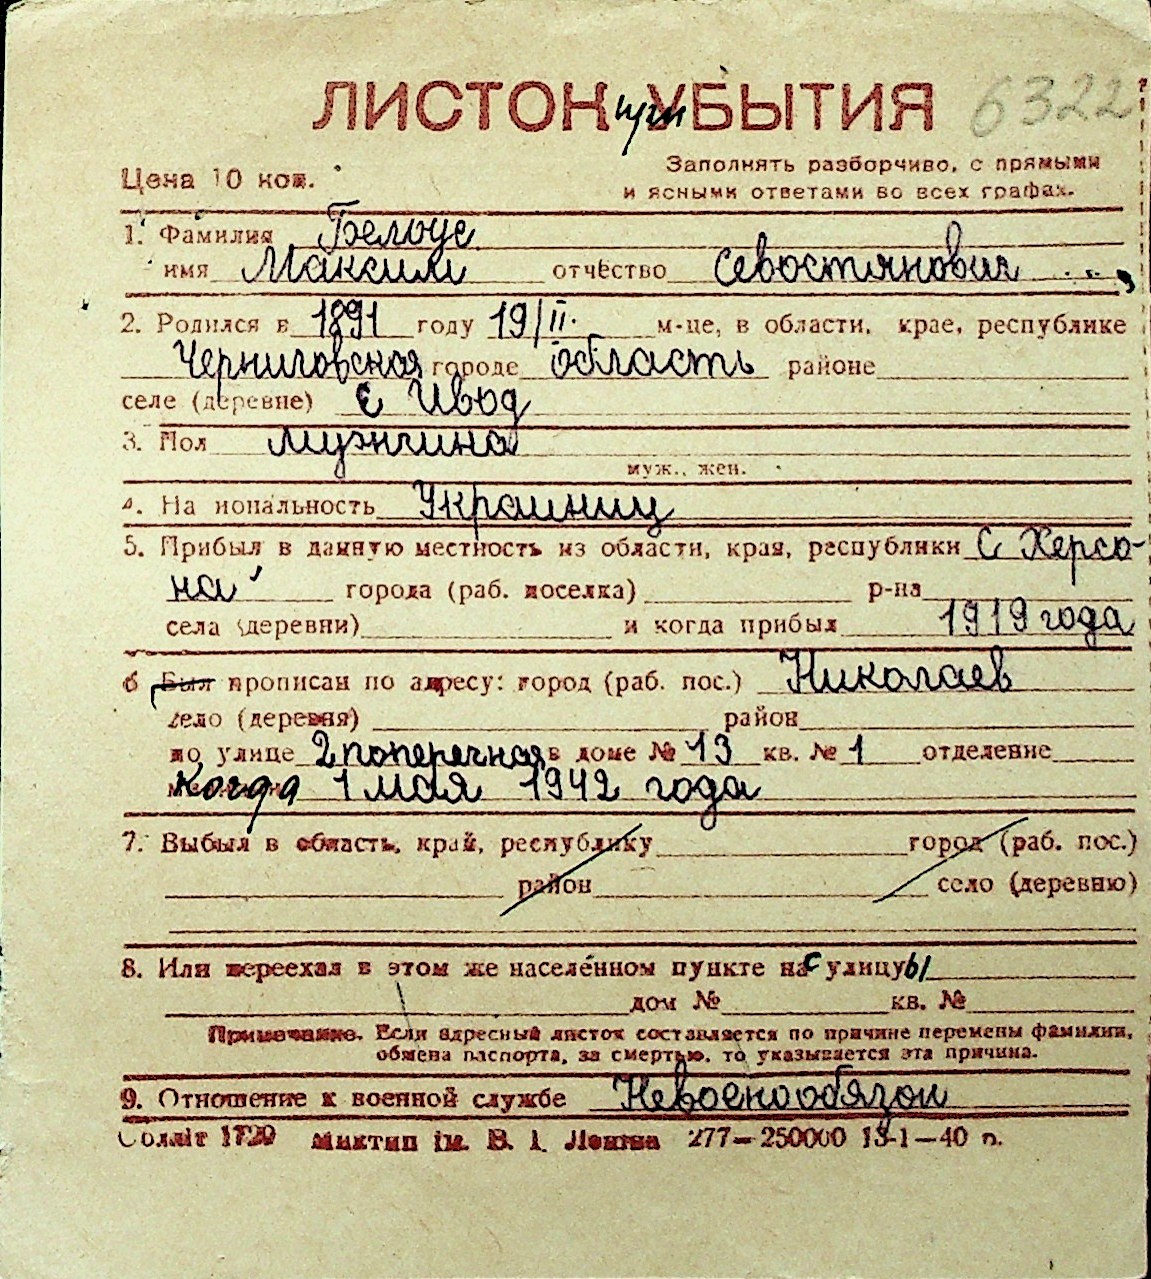 ЛИСТОК при УБЫТИЯ 6322
Цена 10 коп.
Заполнять разборчиво, с прямыми
и ясными ответами во всех графах.
1. Фамилия Белоус
имя Максим отчество Севостянович
2. Родился в 1891 году 19/II. м-це, в области, крае, республике
Черниговская городе область районе
селе (деревне) с Ивод
3. Пол мужчина
муж., жен.
4. Национальность Украинец
5. Прибыл в данную местность из области, края, республики с Херсо-
на города (раб. поселка) р-на
села (деревни) и когда прибыл 1919 года
6 Был прописан по адресу: город (раб. пос.) Николаев
село (деревня) район
по улице 2 поперечная в доме № 13 кв. № 1 отделение
когда 1 мая 1942 года
7. Выбыл в область, край, республику город (раб. пос.)
район село (деревню)
8. Или переехал в этом же населенном пункте на с улицу ы
дом № кв. №
Примечание. Если адресный листок составляется по причине перемены фамилии,
обмена паспорта, за смертью, то указывается эта причина.
9. Отношение к военной службе Невоенообязан
Обліт 1720 Миктип ім. В. І. Леніна 277—250000 13-1—40 р.